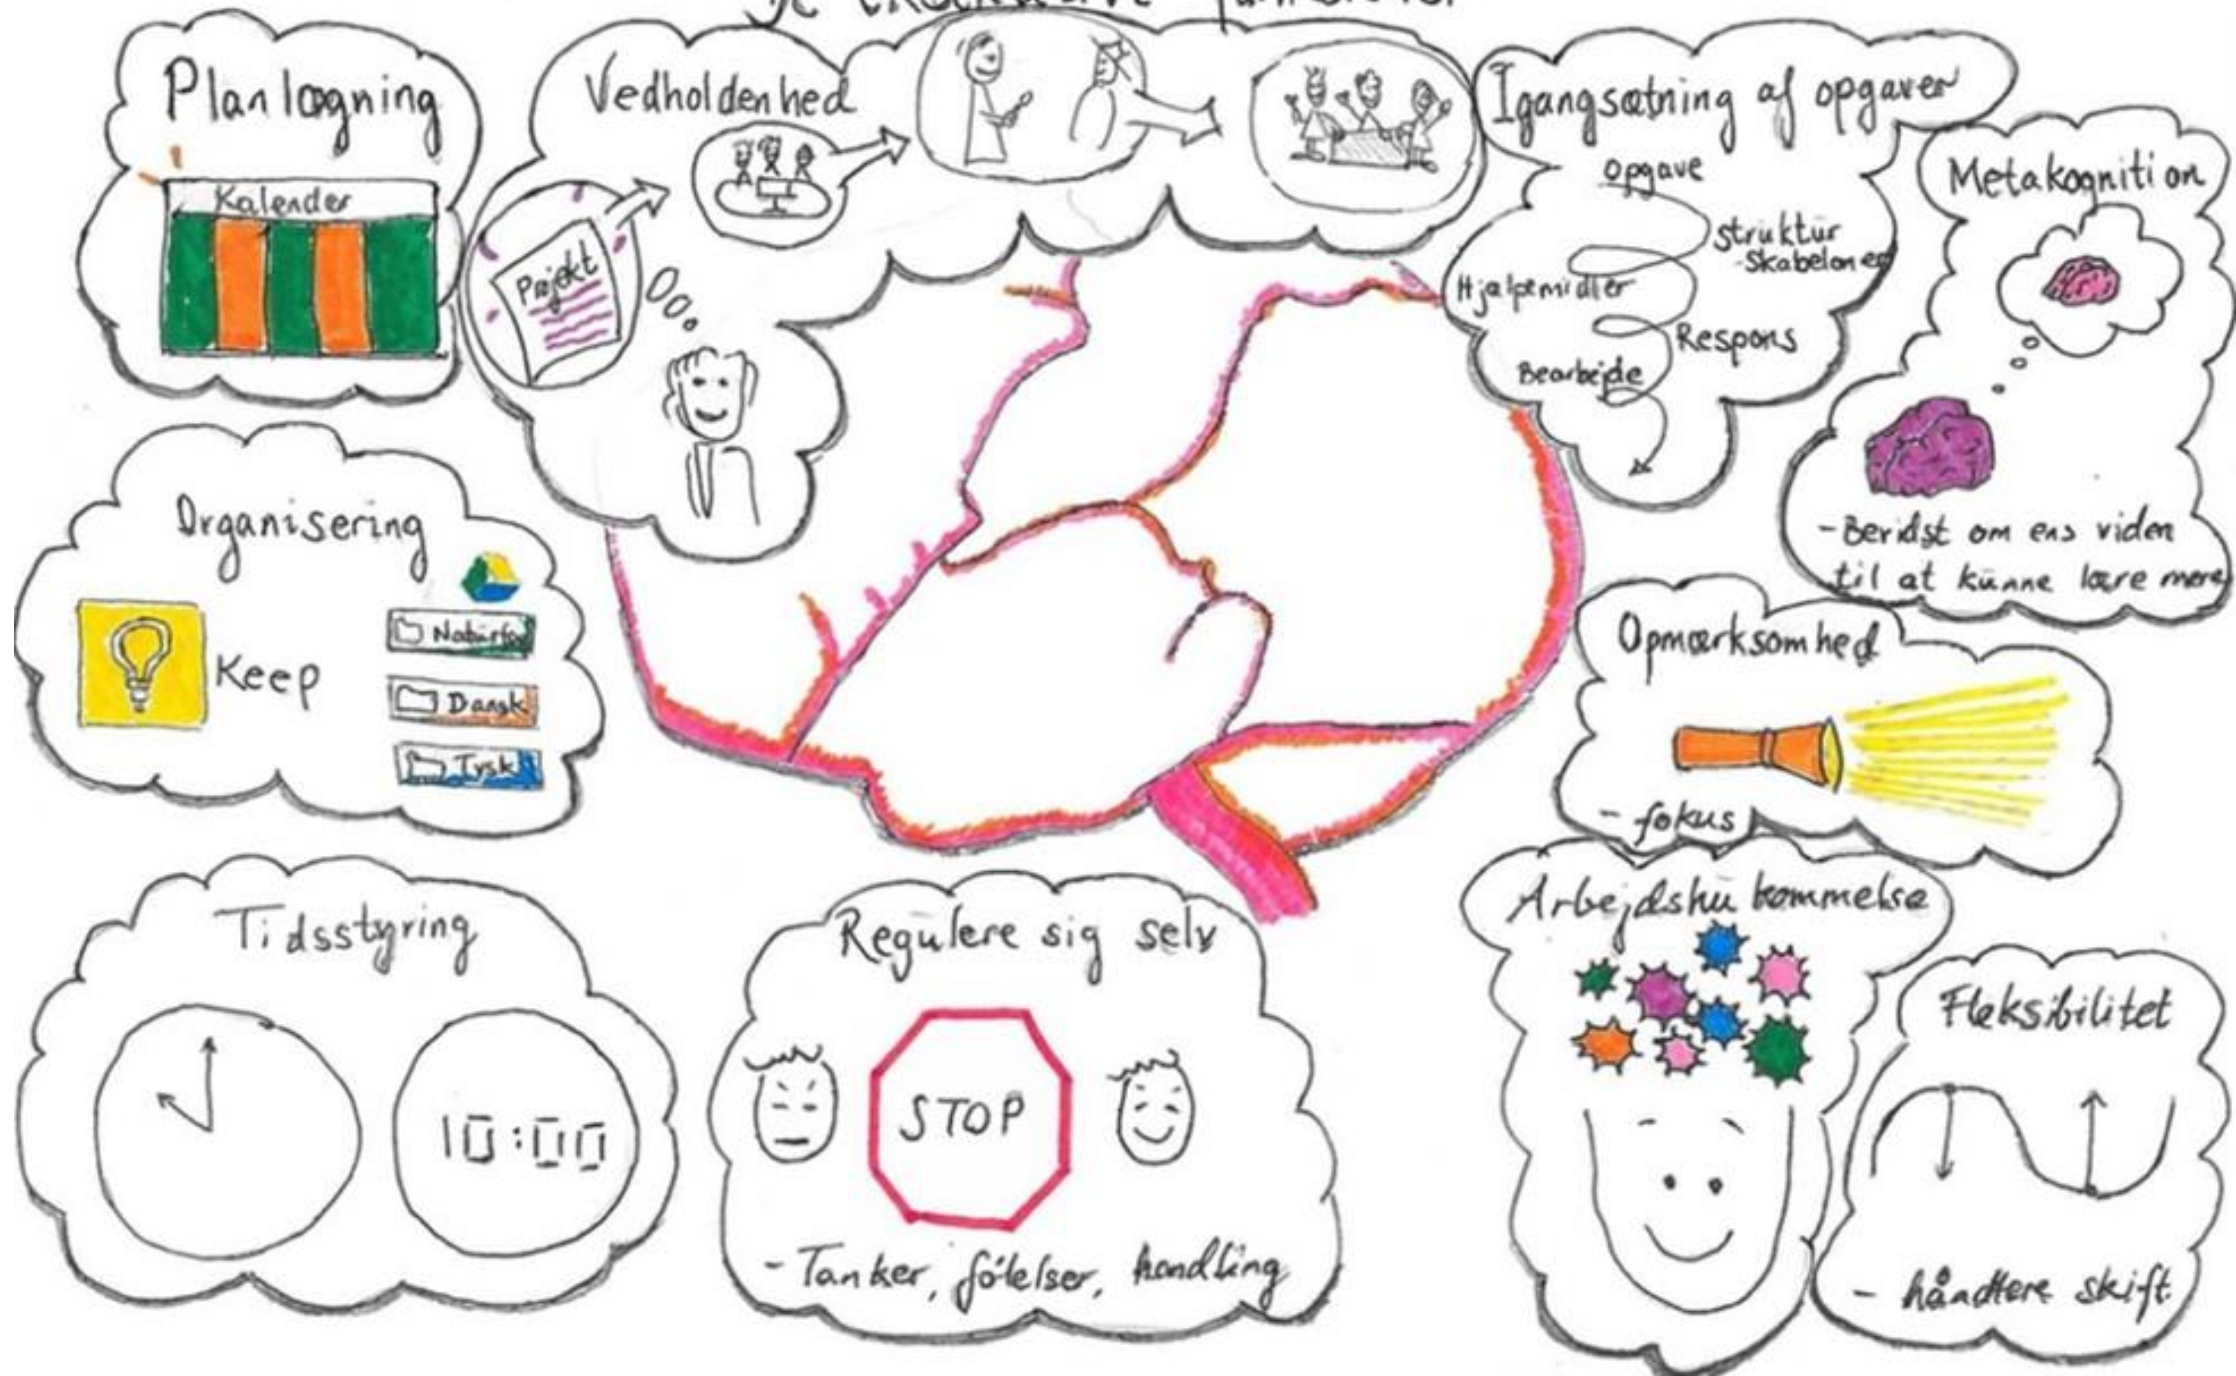 Planlægning
Kalender
Vedholdenhed
Projekt
Igangsætning af opgaver
opgave
struktur
-Skabeloner
Hjælpemidler
Respons
Bearbejde
Metakognition
- Bevidst om ens viden
til at kunne lære mere
Organisering
Keep
Naturfag
Dansk
Tysk
Opmærksomhed
- fokus
Tidsstyring
10:00
Regulere sig selv
STOP
- Tanker, følelser, handling
Arbejdshukommelse
Fleksibilitet
- håndtere skift